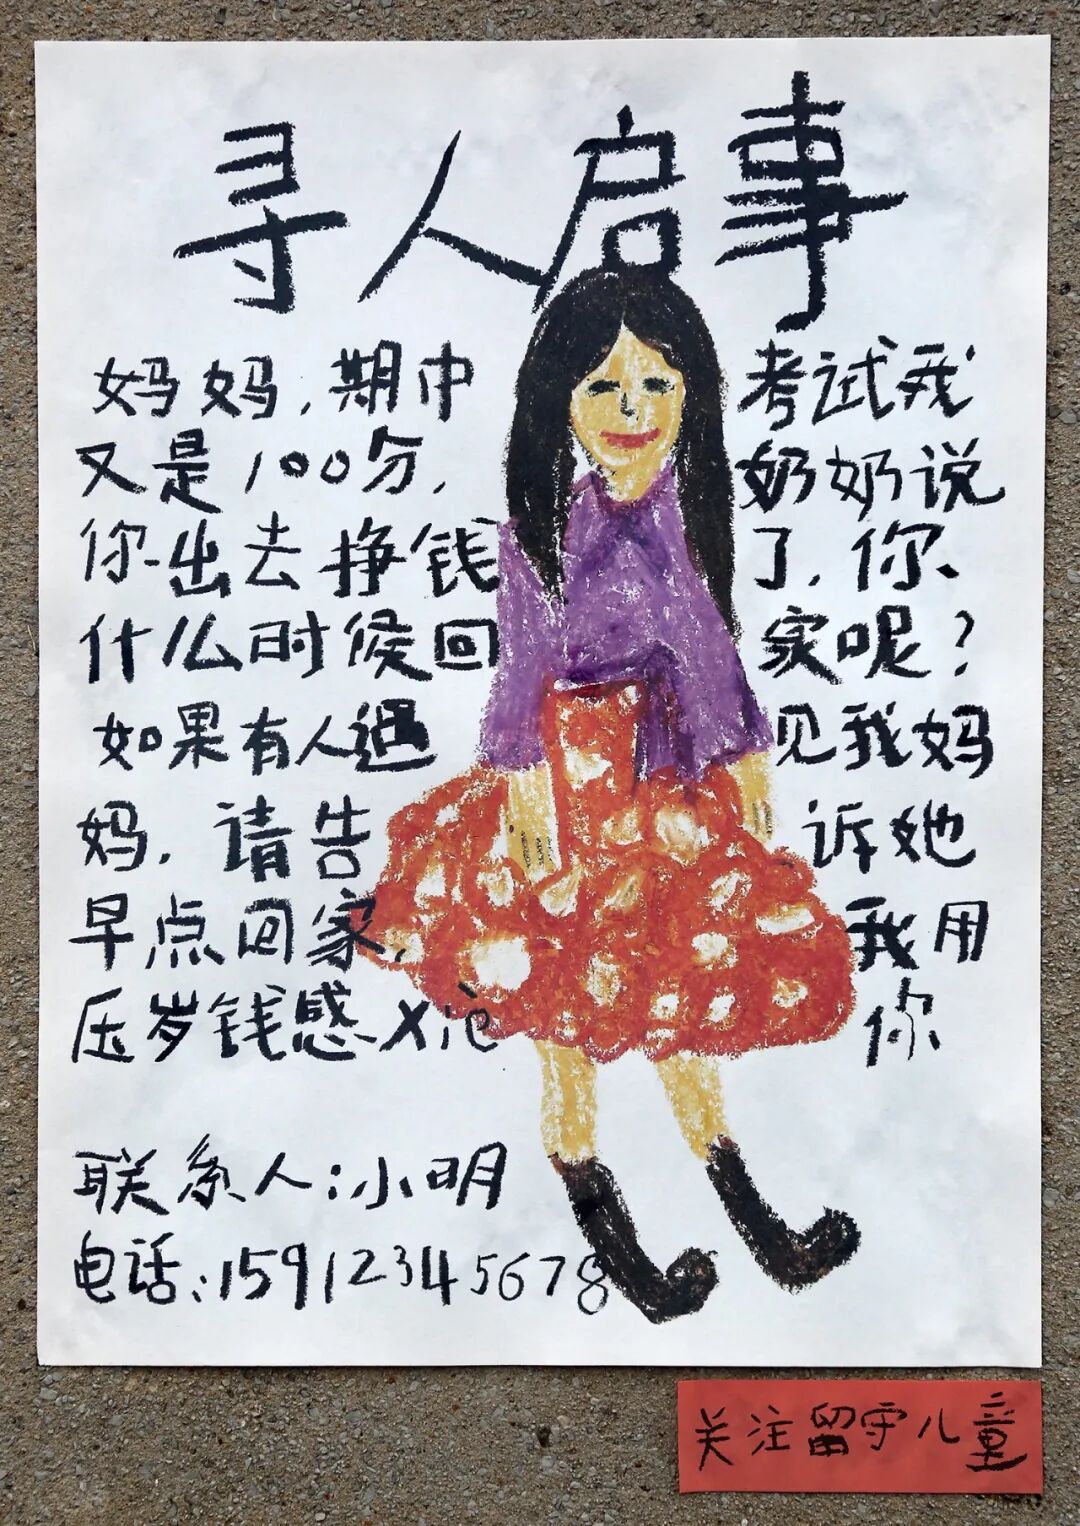 寻人启事
妈妈,期中考试我
又是100分,奶奶说
你出去挣钱了,你
什么时候回家呢?
如果有人遇见我妈
妈,请告诉她
早点回家,我用
压岁钱感X沧你
联系人:小明
电话:15912345678
关注留守儿童